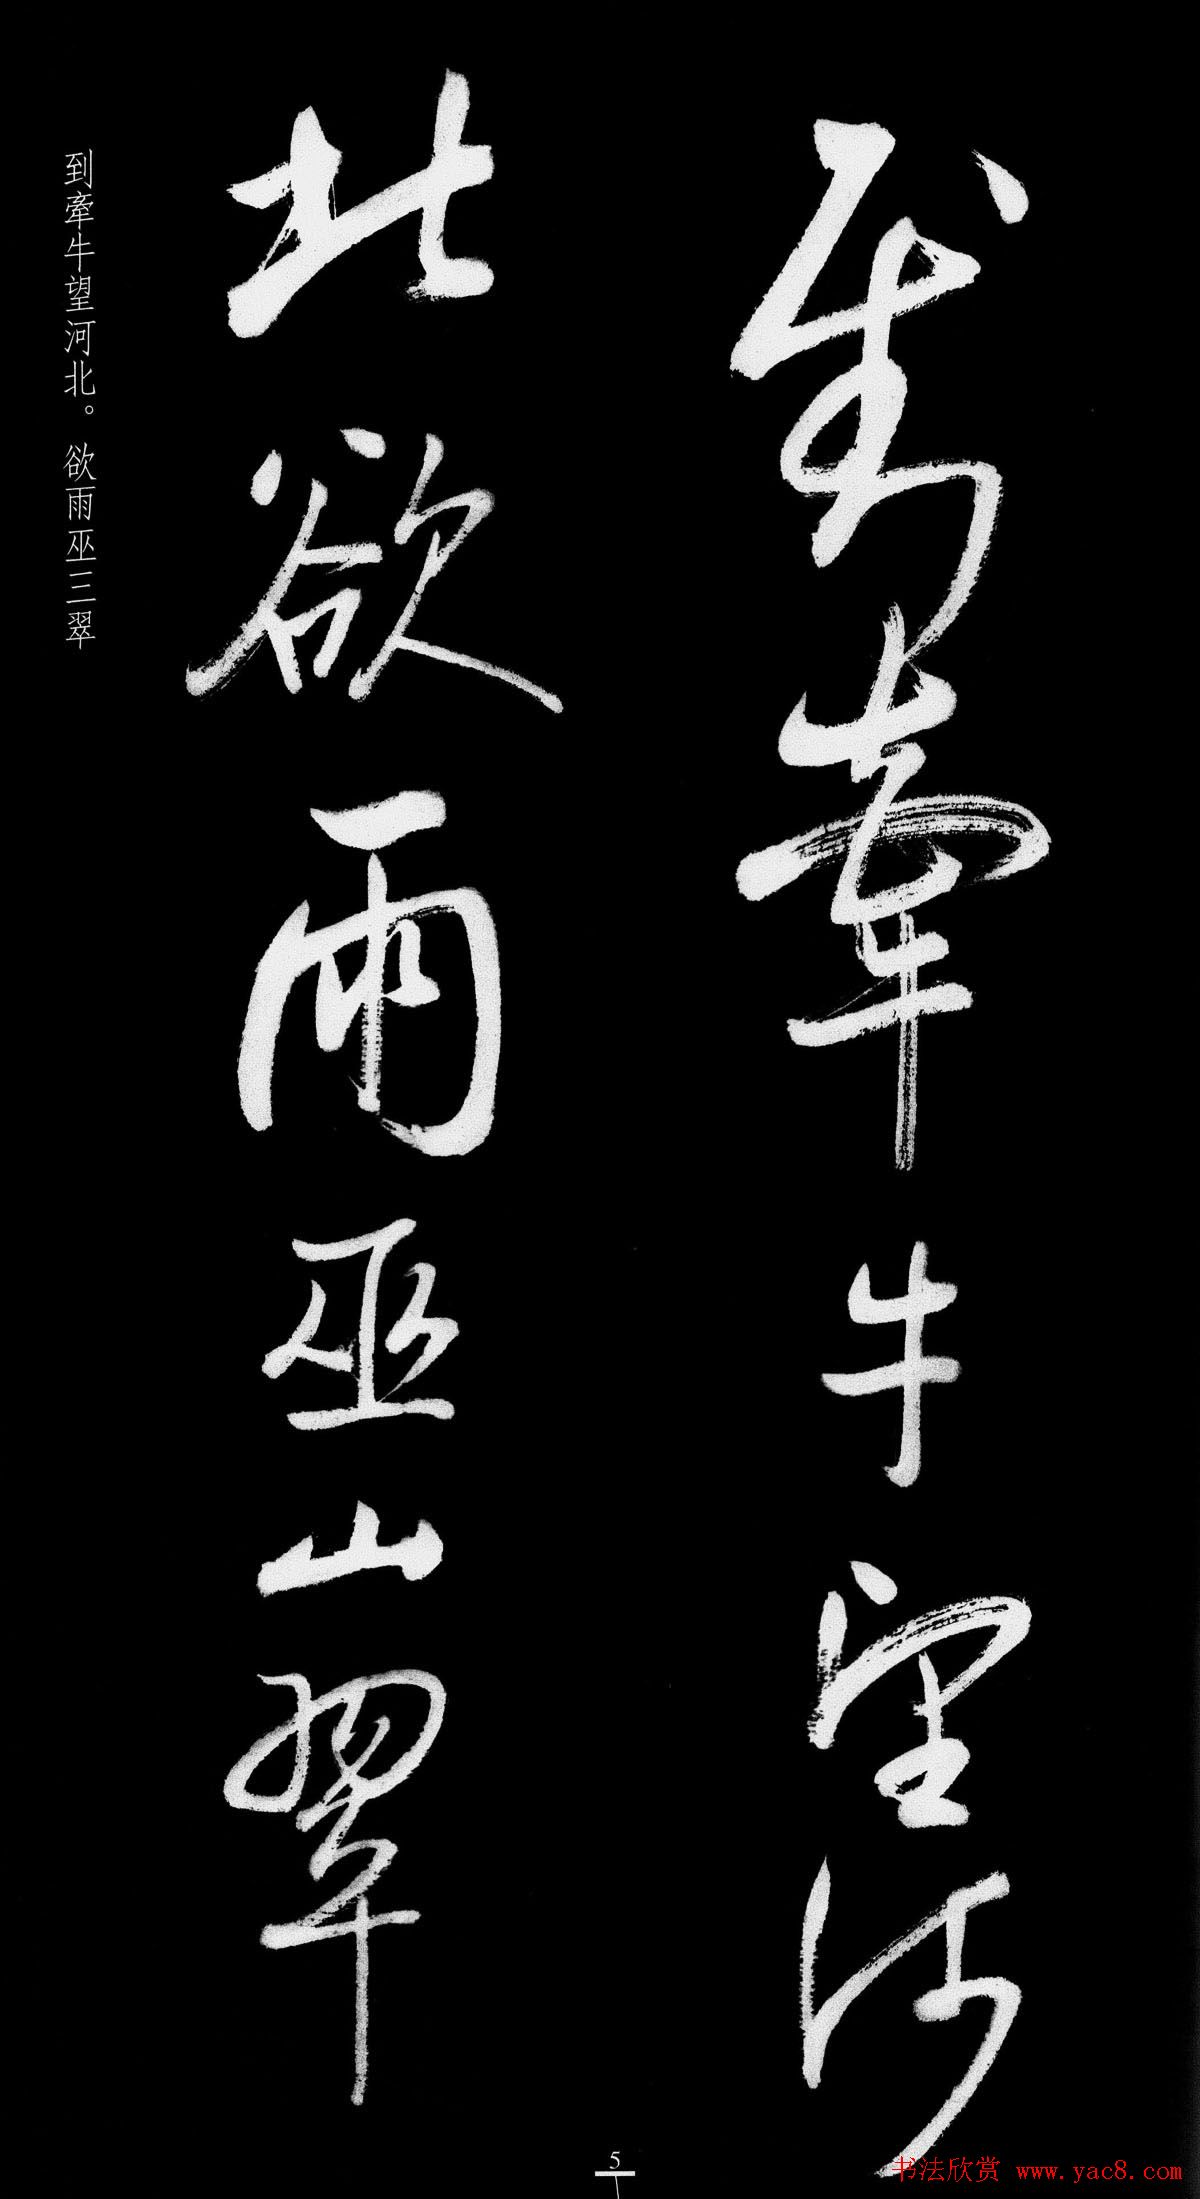 到牽牛望河
北欲雨巫山翠
到牽牛望河北。欲雨巫三翠
5
书法欣赏 www.yac8.com